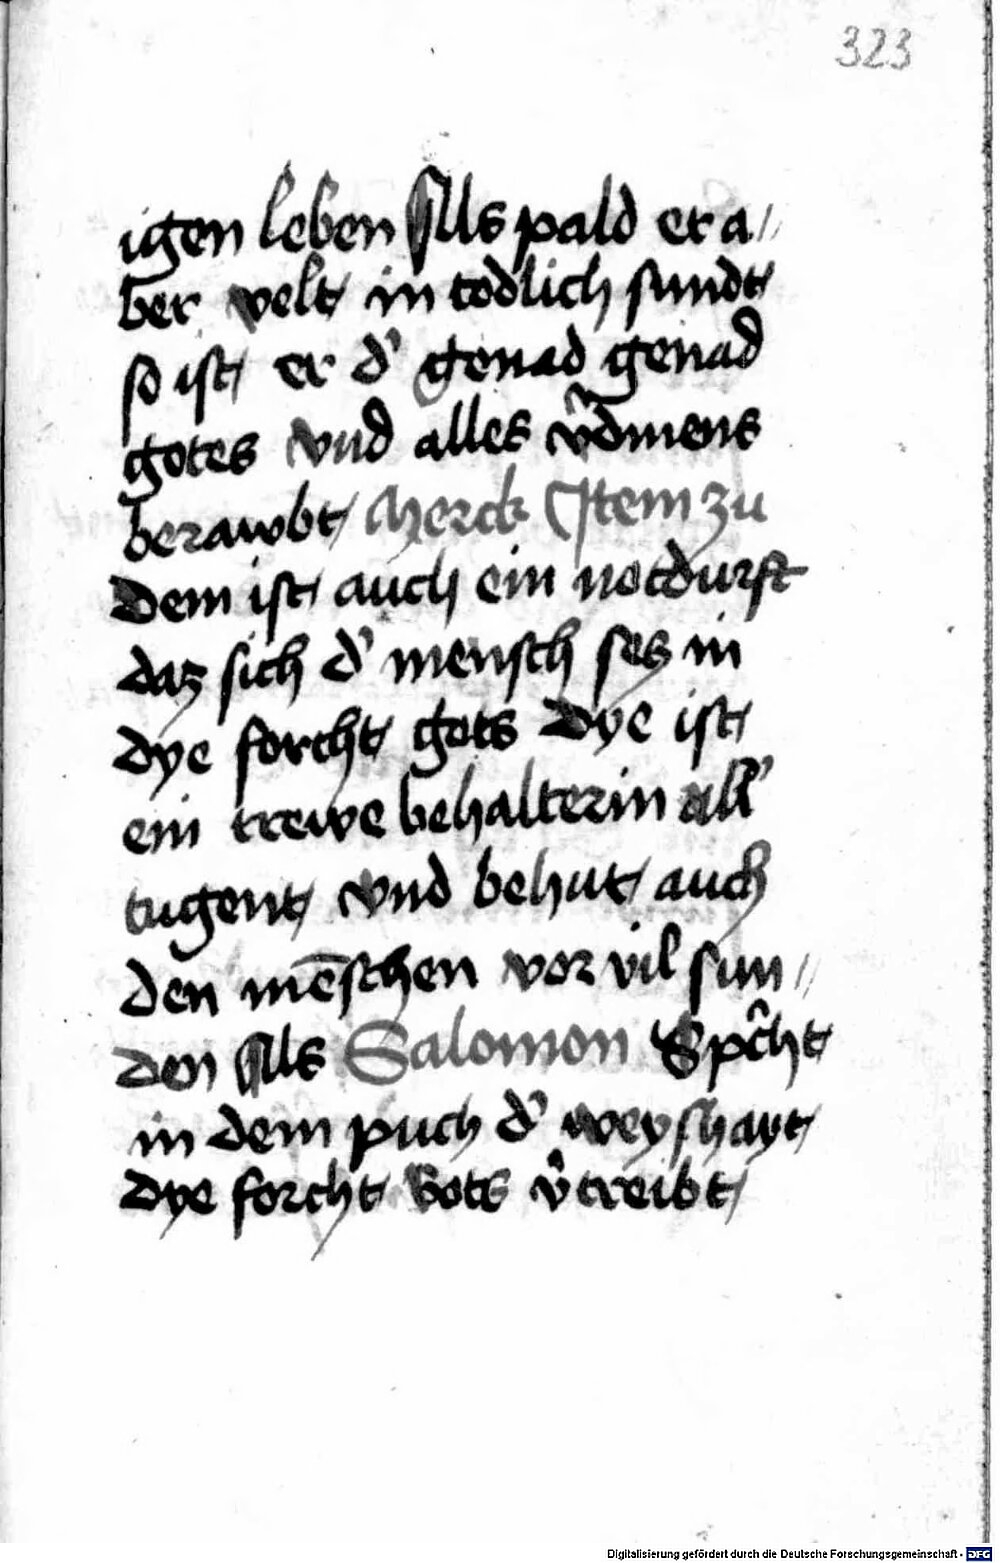 323
igen leben Als pald er a//
ber velt in todlich sundt
so ist er d' genad genad
gotes vnd alles v̂dinens
berawbt Merck Item zu
Dem ist auch ein notdurft
daz sich d' mensch secz in
dye forcht gots Dye ist
ein trewe behalterin all'
tugent vnd behut auch
den mēschen vor vil sun//
den Als Salomon Spĉht
in dem puch d' weyshayt
Dye forcht Gots v̂treibt
Digitalisierung gefördert durch die Deutsche Forschungsgemeinschaft - DFG